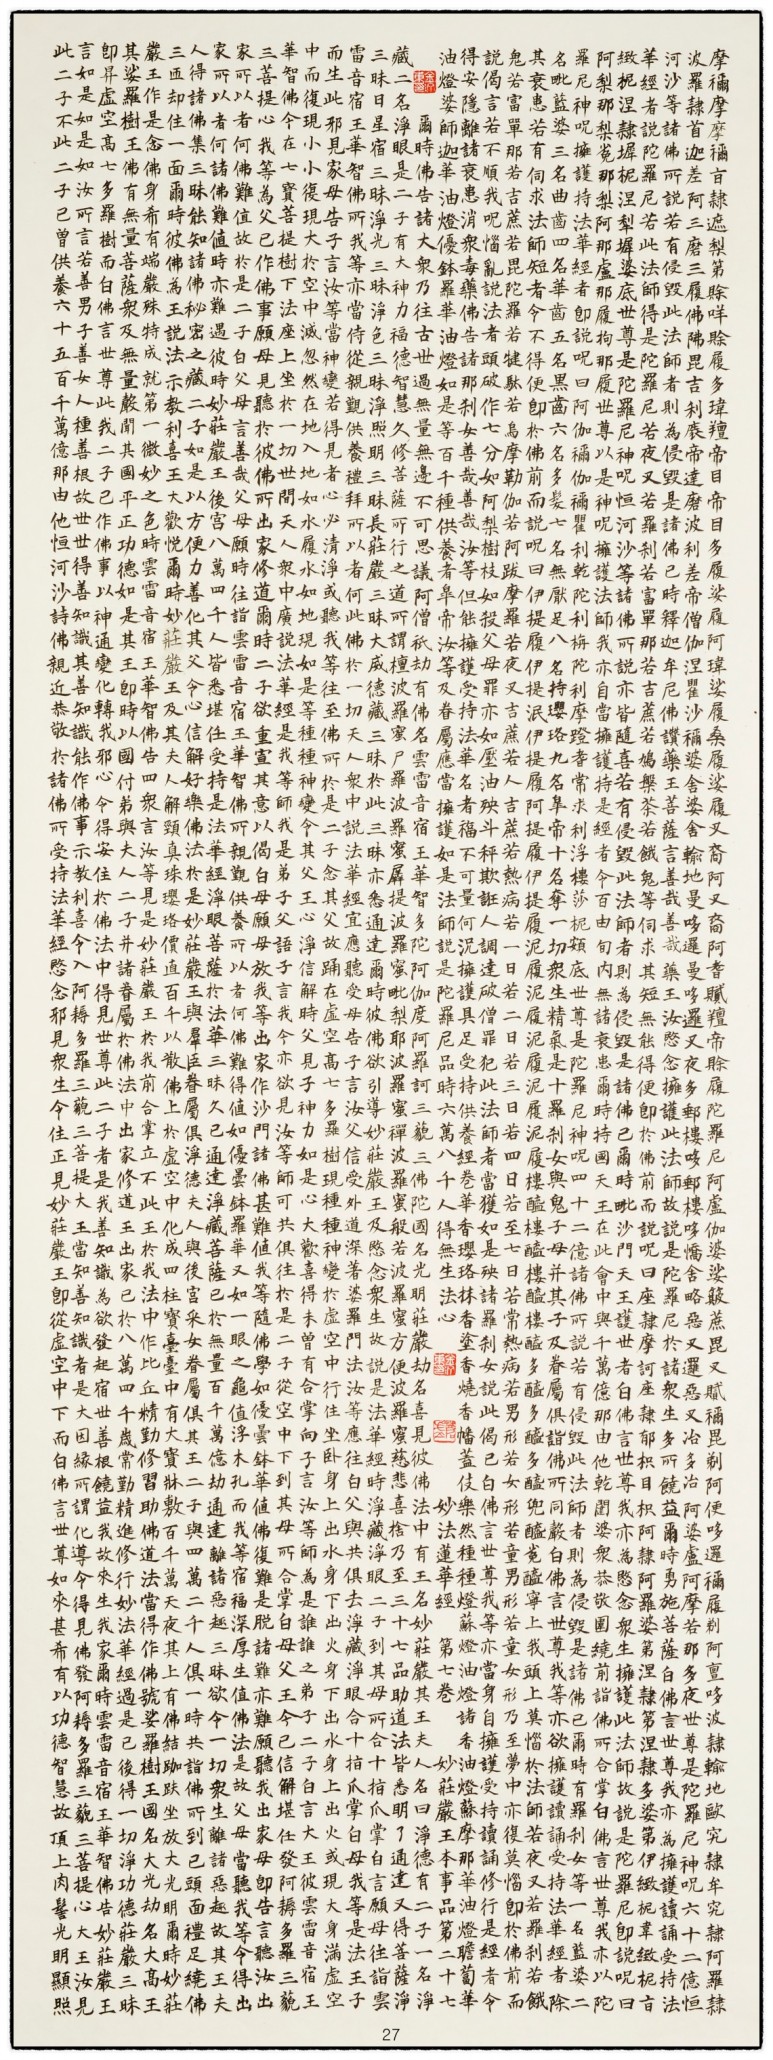 摩禰摩摩禰旨隸遮梨第賒咩賒履多瑋羶帝目帝目多履娑履阿瑋娑履桑履娑履叉裔阿叉裔阿耆膩羶帝賒履陀羅尼阿盧伽婆娑簸蔗毘叉膩禰毘剃阿便哆邏禰履剃阿亶哆波隸輸地歐究隸牟究隸阿羅隸
波羅隸首迦差阿三磨三履佛陀毘吉利袠帝達磨波利差帝僧伽涅瞿沙禰婆舍婆舍輸地曼哆邏曼哆邏叉夜多郵樓哆郵樓哆憍舍略惡叉邏惡叉冶多冶阿婆盧阿摩若那多夜世尊是陀羅尼神呪六十二億恒
河沙等諸佛所說若有侵毀此法師者則為侵毀是諸佛已時釋迦牟尼佛讚藥王菩薩言善哉善哉藥王汝愍念擁護此法師故說是陀羅尼於諸衆生多所饒益爾時勇施菩薩白佛言世尊我亦為擁護讀誦受持法
華經者說陀羅尼若此法師得是陀羅尼若夜叉若羅剎若富單那若吉蔗若鳩槃荼若餓鬼等伺求其短無能得便卽於佛前而說呪曰座隸摩訶座隸郁枳目枳阿隸阿羅婆第涅隸第涅隸多婆第伊緻柅韋緻柅旨
緻柅涅隸墀柅涅犁墀婆底世尊是陀羅尼神呪恒河沙等諸佛所說亦皆隨喜若有侵毀此法師者則為侵毀是諸佛已爾時毗沙門天王護世者白佛言世尊我亦為愍念衆生擁護此法師故說是陀羅尼卽說呪曰
阿梨那梨㝹那梨阿那盧那履拘那履世尊以是神呪擁護法師我亦自當擁護持是經者令百由旬內無諸衰患爾時持國天王在此會中與千萬億那由他乾闥婆衆恭敬圍繞前詣佛所合掌白佛言世尊我亦以陀
羅尼神呪擁護持法華經者卽說呪曰阿伽禰伽禰瞿利乾陀利栴陀利摩蹬耆常求利浮樓莎柅頞底世尊是陀羅尼神呪四十二億諸佛所說若有侵毀此法師者則為侵毀是諸佛已爾時有羅剎女等一名藍婆二
名毗藍婆三名曲齒四名華齒五名黑齒六名多髮七名無厭足八名持瓔珞九名皐帝十名奪一切衆生精氣是十羅剎女與鬼子母幷其子及眷屬俱詣佛所同聲白佛言世尊我等亦欲擁護讀誦受持法華經者除
其衰患若有伺求法師短者令不得便卽於佛前而說呪曰伊提履伊提泯伊提履阿提履伊提履泥履泥履泥履泥履泥履樓醯樓醯樓醯樓醯多醯多醯多醯兜醯㝹醯寧上我頭上莫惱於法師若夜叉若羅剎若餓
鬼若富單那若吉蔗若毘陀羅若犍馱若烏摩勒伽若阿跋摩羅若夜叉吉蔗若人吉蔗若熱病若一日若二日若三日若四日若至七日若常熱病若男形若女形若童男形若童女形乃至夢中亦復莫惱卽於佛前而
說偈言若不順我呪惱亂說法者頭破作七分如阿梨樹枝如殺父母罪亦如壓油殃斗秤欺誑人調達破僧罪犯此法師者當獲如是殃諸羅剎女說此偈已白佛言世尊我等亦當身自擁護受持讀誦修行是經者令
得安隱離諸衰患消衆毒藥佛告諸羅剎女善哉善哉汝等但能擁護受持法華名者福不可量何況擁護具足受持供養經卷華香瓔珞抹香塗香燒香幡蓋伎樂然種種燈蘇燈油燈諸香油燈蘇摩那華油燈瞻蔔華
油燈婆師迦華油燈優鉢羅華油燈如是等百千種供養者皐帝汝等及眷屬應當擁護如是法師說是陀羅尼品時六萬八千人得無生法忍 妙法蓮華經 第七卷 妙莊嚴王本事品第二十七
爾時佛告諸大衆乃往古世過無量無邊不可思議阿僧祇劫有佛名雲雷音宿王華智多陀阿伽度阿羅訶三藐三佛陀國名光明莊嚴劫名喜見彼佛法中有王名妙莊嚴其王夫人名曰淨德有二子一名淨
藏二名淨眼是二子有大神力福德智慧久修菩薩所行之道所謂檀波羅蜜尸羅波羅蜜羼提波羅蜜毗梨耶波羅蜜禪波羅蜜般若波羅蜜方便波羅蜜慈悲喜捨乃至三十七品助道法皆悉明了通達又得菩薩淨
三昧日星宿三昧淨光三昧淨色三昧淨照明三昧長莊嚴三昧大威德藏三昧於此三昧亦悉通達爾時彼佛欲引導妙莊嚴王及愍念衆生故說是法華經時淨藏淨眼二子到其母所合十指爪掌白言願母往詣雲
雷音宿王華智佛所我等亦當侍從親覲供養禮拜所以者何此佛於一切天人衆中說法華經宜應聽受母告子言汝父信受外道深著婆羅門法汝等應往白父與共俱去淨藏淨眼合十指爪掌白母我等是法王子
而生此邪見家母告子言汝等當神變若得見者心必清淨或聽我等往至佛所於是二子念其父故踊在虛空高七多羅樹現種種神變於虛空中行住坐臥身上出水身下出火身下出水身上出火或現大身滿虛空
中而復現小小復現大於空中滅忽然在地入地如水履水如地現如是等種種神變令其父王心淨信解時父見子神力如是心大歡喜得未曾有合掌向子言汝等師為是誰誰之弟子二子白言大王彼雲雷音宿王
華智佛今在七寶菩提樹下法座上坐於一切世間天人衆中廣說法華經是我等師我是弟子父語子言我今亦欲見汝等師可共俱往於是二子從空中下到其母所合掌白母父王今已信解堪任發阿耨多羅三藐
三菩提心我等為父已作佛事願母見聽於彼佛所出家修道爾時二子欲重宣其意以偈白母願母放我等出家作沙門諸佛甚難值我等隨佛學如優曇鉢華值佛復難是脫諸難亦難願聽我出家母卽告言聽汝出
家所以者何佛難值故於是二子白父母言善哉父母願時往詣雲雷音宿王華智佛所親覲供養所以者何佛難得值如優曇鉢羅華又如一眼之龜值浮木孔而我等宿福深厚生值佛法是故父母當聽我等令得出
家所以者何諸佛難值時亦難遇彼時妙莊嚴王後宮八萬四千人皆悉堪任受持是法華經淨眼菩薩於法華三昧久已通達淨藏菩薩已於無量百千萬億劫通達離諸惡趣三昧欲令一切衆生離諸惡趣故其王夫
人得諸佛集三昧能知諸佛秘密之藏二子如是以方便力善化其父令心信解好樂佛法於是妙莊嚴王與羣臣眷屬俱淨德夫人與後宮采女眷屬俱其王二子與四萬二千人俱一時共詣佛所到已頭面禮足繞佛
三匝却住一面爾時彼佛為王說法示教利喜王大歡悅爾時妙莊嚴王及其夫人解頸真珠瓔珞價直百千以散佛上於虛空中化成四柱寶臺臺中有大寶牀敷百千萬天衣其上有佛結跏趺坐放大光明爾時妙莊
嚴王作是念佛身希有端嚴殊特成就第一微妙之色時雲雷音宿王華智佛告四衆言汝等見是妙莊嚴王於我前合掌立不此王於我法中作比丘精勤修習助佛道法當得作佛號娑羅樹王國名大光劫名大高王
其娑羅樹王佛有無量菩薩衆及無量聲聞其國平正功德如是其王卽時以國付弟與夫人二子幷諸眷屬於佛法中出家修道王出家已於八萬四千歲常勤精進修行妙法華經過是已後得一切淨功德莊嚴三昧
卽昇虛空高七多羅樹而白佛言世尊此我二子已作佛事以神通變化轉我邪心令得安住於佛法中得見世尊此二子者是我善知識為欲發起宿世善根饒益我故來生我家爾時雲雷音宿王華智佛告妙莊嚴王
言如是如是如汝所言若善男子善女人種善根故世世得善知識其善知識能作佛事示教利喜令入阿耨多羅三藐三菩提大王當知善知識者是大因緣所謂化導令得見佛發阿耨多羅三藐三菩提心大王汝見
此二子不此二子已曾供養六十五百千萬億那由他恒河沙諸佛親近恭敬於諸佛所受持法華經愍念邪見衆生令住正見妙莊嚴王卽從虛空中下而白佛言世尊如來甚希有以功德智慧故頂上肉髻光明顯照
27